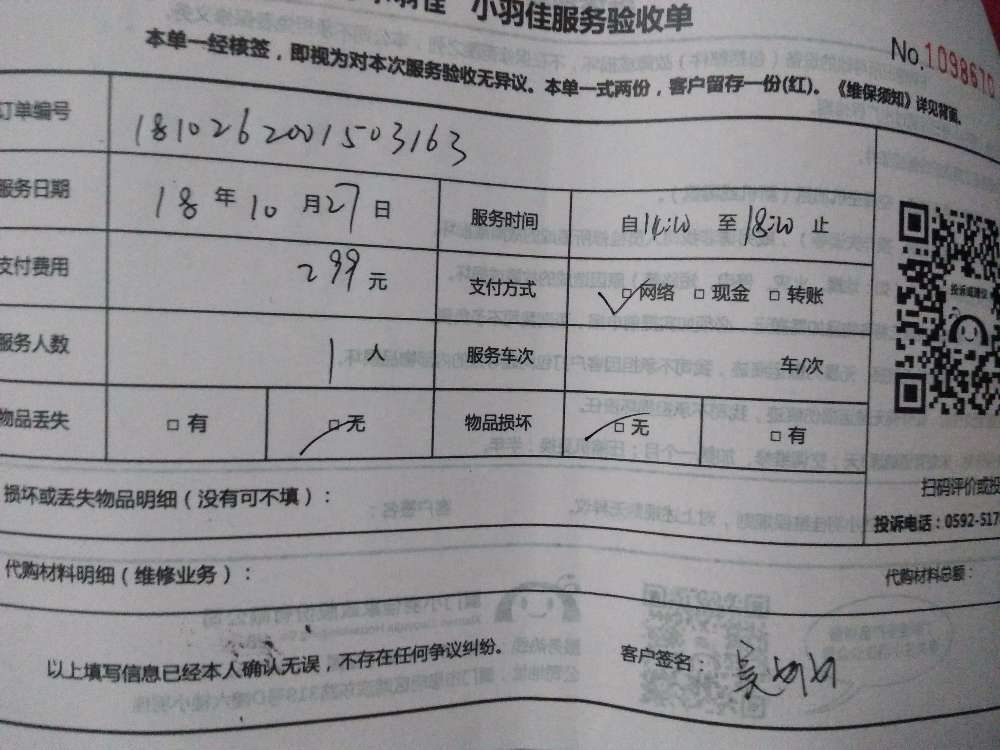 小羽佳服务验收单
No.1098670
本单一经核签，即视为对本次服务验收无异议。本单一式两份，客户留存一份(红)。《维保须知》详见背面。
订单编号 1810262001503163
服务日期 18年10月27日 服务时间 自14:10 至18:10 止
支付费用 299元 支付方式 □网络 □现金 □转账
服务人数 1人 服务车次 车/次
物品丢失 □有 □无 物品损坏 □无 □有
投诉或建议
扫码评价或投
损坏或丢失物品明细（没有可不填）：
投诉电话：0592-517
代购材料明细（维修业务）：
代购材料总额：
以上填写信息已经本人确认无误，不存在任何争议纠纷。
客户签名：